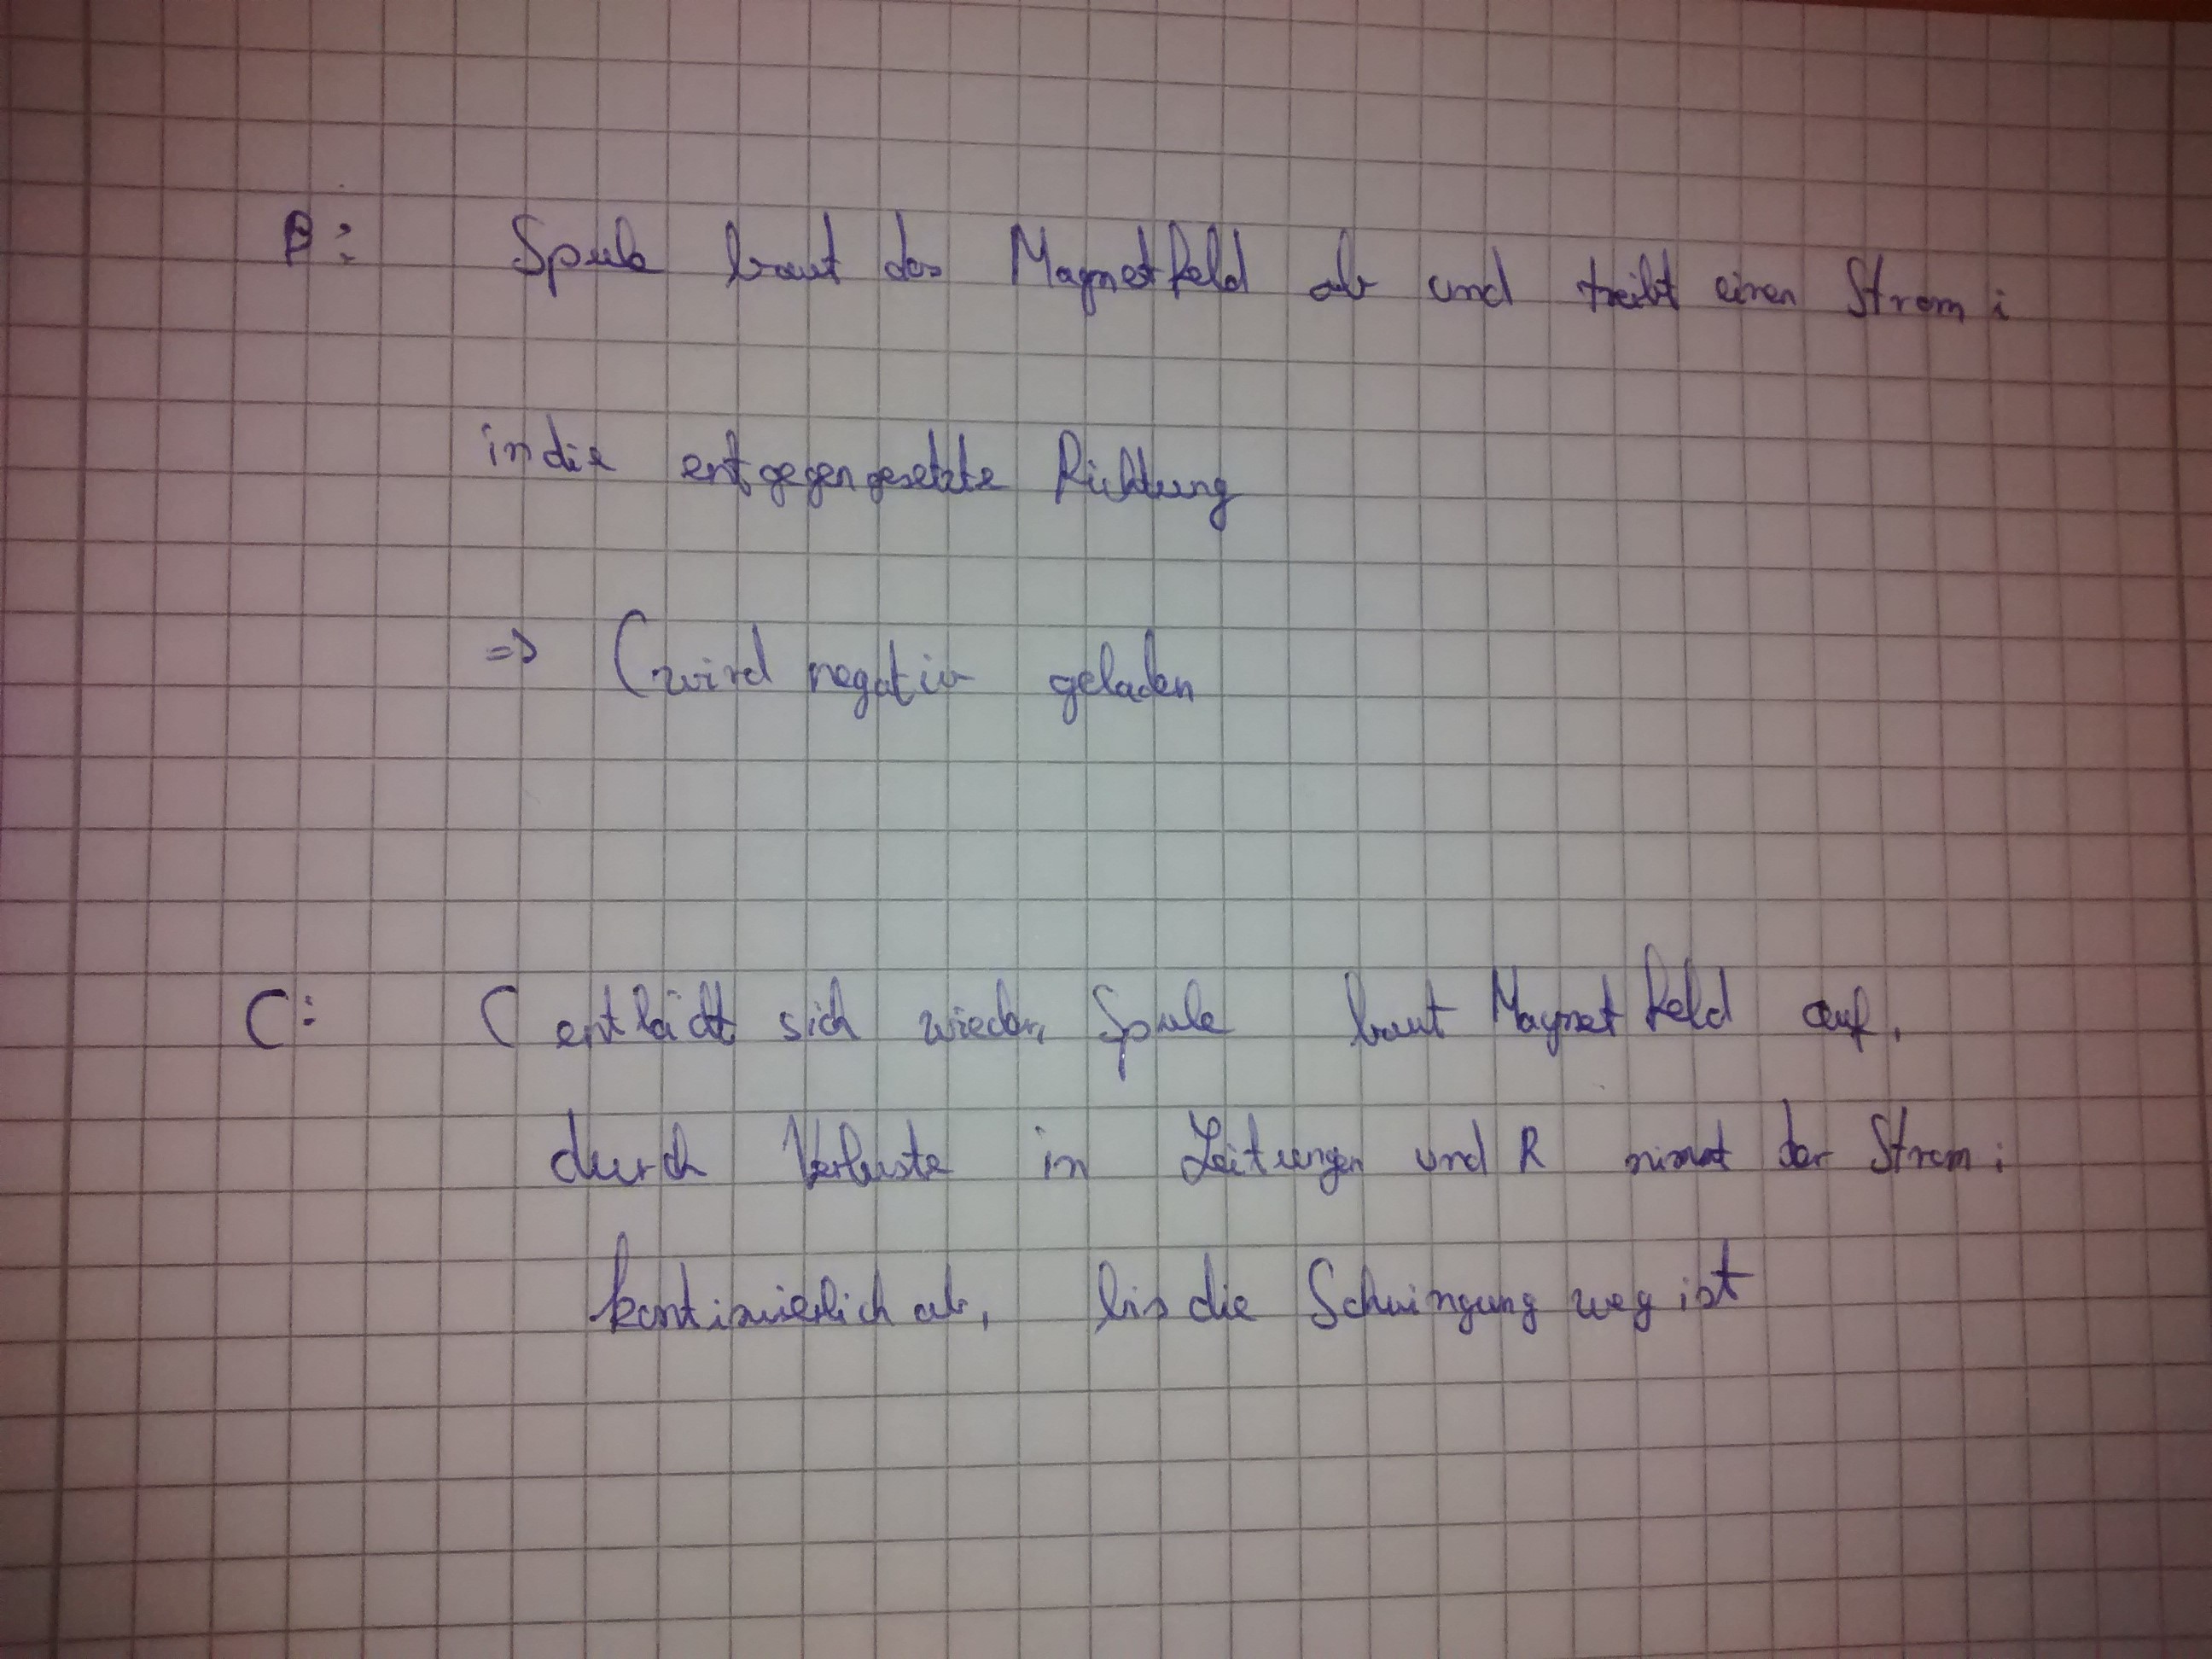 B: Spule baut das Magnetfeld ab und treibt einen Strom i
in die entgegengesetzte Richtung
=> C wird negativ geladen
C: C entlädt sich wieder, Spule baut Magnetfeld auf,
durch Verluste in Leitungen und R nimmt der Strom i
kontinuierlich ab, bis die Schwingung weg ist